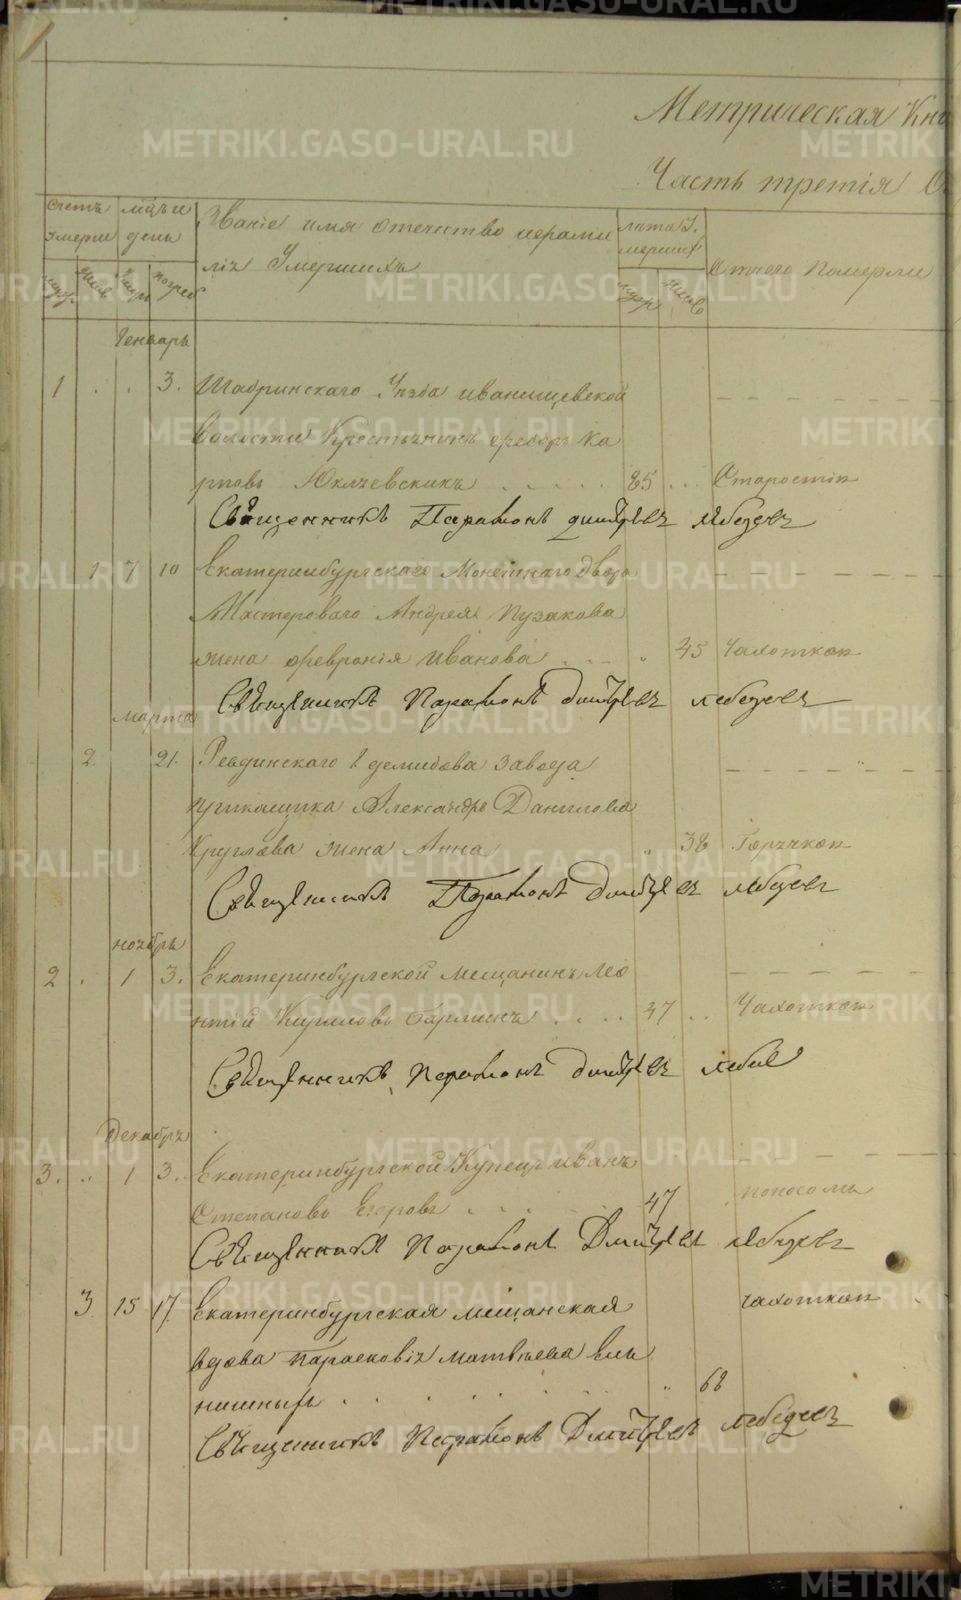 Метрическая Кни
Часть третія О
Счетъ умерш
мцъ и день
Званіе имя отечество и фамиліи Умершихъ
лета умерших
Отчего Померли
муж
женс
умер
погреб
муж
женс
Генварь
1 . . 3. Шадринскаго Уезда иванищевской
волости Крестьянинъ Феодоръ Ка
рповъ Юклаевскихъ . . . . . 85 . . . Старостію
Священникъ Парамонъ Дмитріевъ Лебедевъ
1 7 10 Екатеринбургскаго Монетнаго двора
Мастероваго Андрея Пузакова
жена февронія иванова . . . . " 45 Чахоткою
Священникъ Парамонъ Дмитріевъ Лебедевъ
марта
2. 21. Ревдинскаго г демидова завода
прикащика Александра Данилова
Круглова жена Анна " 38 Горячкою
Священникъ Парамонъ Дмитріевъ Лебедевъ
ноябрь
2 . 1 3. Екатеринбургской мещанинъ Лео
нтій Кириловъ . . . . 47 . . Чахоткою
Священникъ Парамонъ Дмитріевъ Лебедев
Декабрь
3. " 1 3. Екатеринбургской Купецъ иванъ
Степановъ Егоровъ . . . . . 47 поносомъ
Священникъ Парамонъ Дмитріевъ Лебедевъ
3. 15 17. Екатеринбургская мещанская чахоткою
вдова Парасковія матвеева
. . . . . . . " 68
Священникъ Парамонъ Дмитріевъ Лебедевъ
METRIKI.GASO-URAL.RU